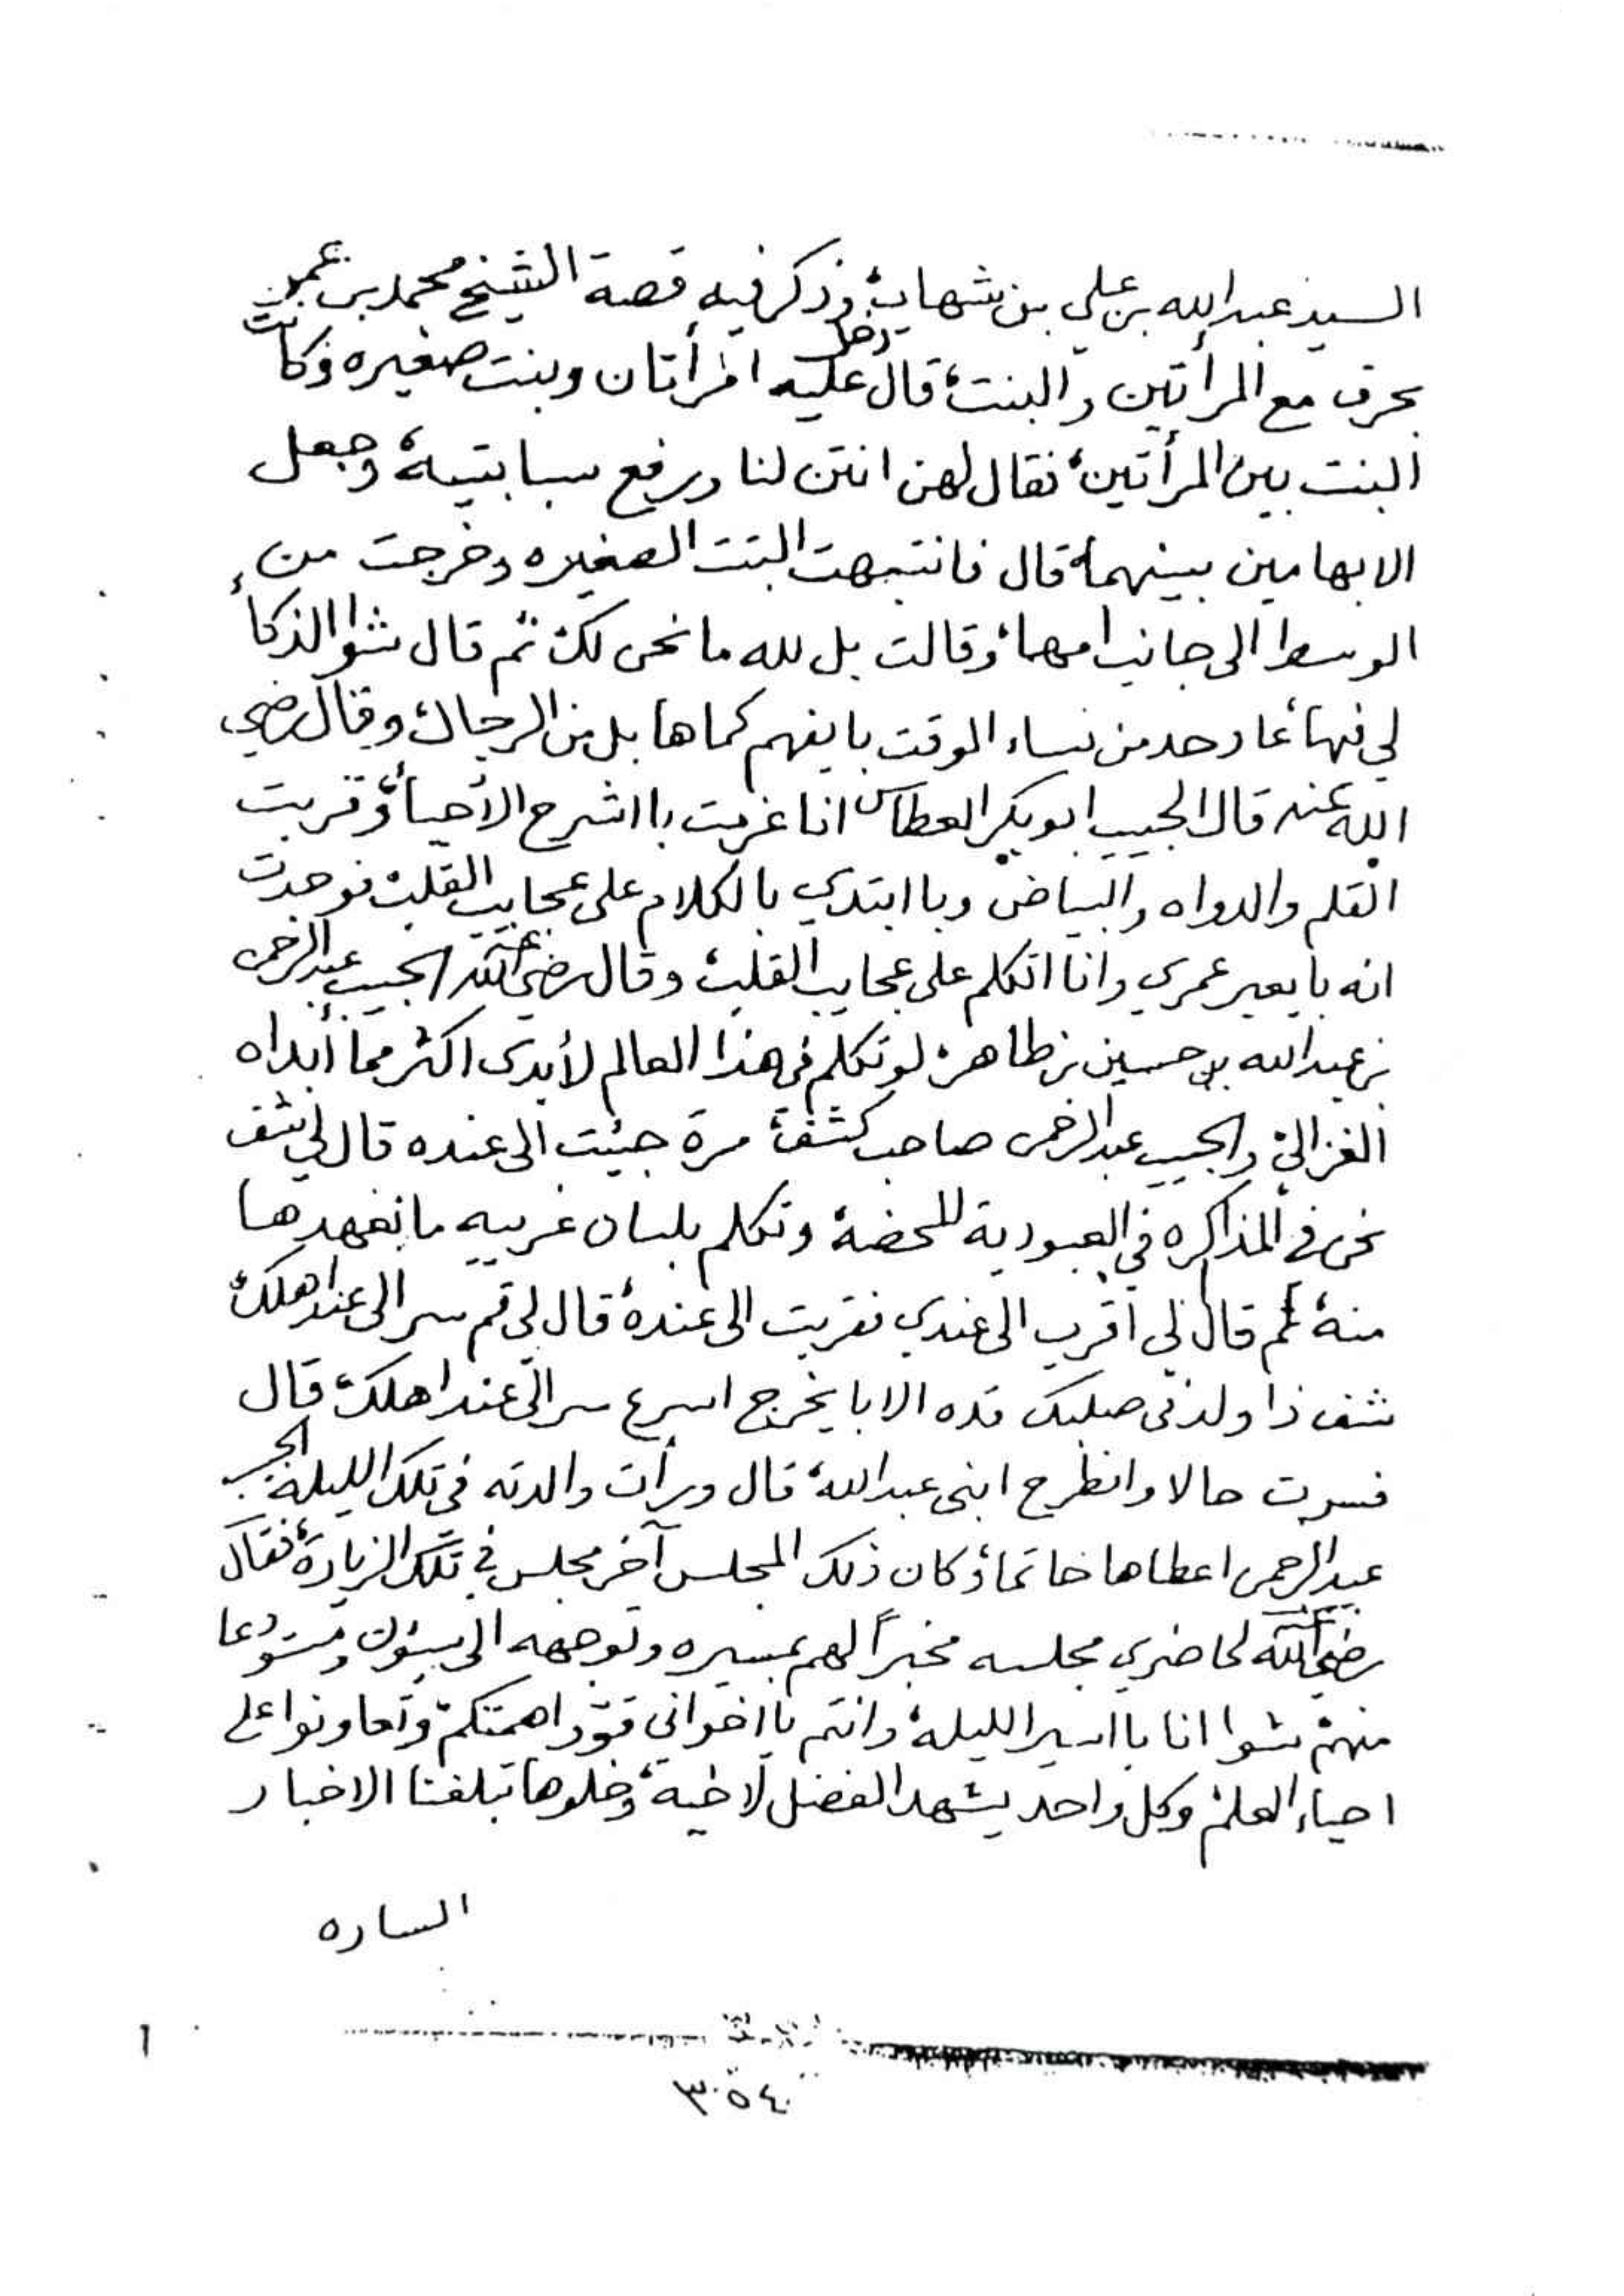 السيد عبدالله بن علي بن شهاب، وذكر فيه قصة الشيخ محمد بن عمر
بحرق مع المرأتين والبنت، قال دخل عليه امرأتان وبنت صغيره وكانت
البنت بين المرأتين، فقال لهن انتن لنا ورفع سبابتيه، وجعل
الابهامين بينهما، قال فانتبهت البنت الصغيره وخرجت من
الوسط الى جانب امهما، وقالت بل لله ما نحن لك، ثم قال شوا الذكاء
لي فيها، عاد حد من نساء الوقت با يفهم كماها بل من الرجال، وقال رضي
الله عنه قال الحبيب ابو بكر العطاس انا عزمت با اشرح الأحياء، وقربت
القلم والدواه والبياض وبا ابتدي بالكلام على عجايب القلب، فوجدت
انه با يعبر عمري وانا اتكلم على عجايب القلب، وقال رضي الله عنه الحبيب عبدالرحمن
بن عبدالله بن حسين بن طاهر، لو تكلم في هذا العالم لأبدى اكثر مما أبداه
الغزالي، والحبيب عبدالرحمن صاحب كشف، مرة جيئت الى عنده قال لي شف
نحن في المذاكره في العبودية المحضة، وتكلم بلسان غريبه ما نعهدها
منه، ثم قال لي اقرب الى عندي فقربت الى عنده، قال لي قم سر الى عند اهلك،
شف ذا ولد في صلبك قده الا با يخرج اسرع سر الى عند اهلك، قال
فسرت حالا وانطرح ابني عبدالله، قال ورأت والدته في تلك الليلة الحبيب
عبدالرحمن اعطاها خاتما، وكان ذلك المجلس آخر مجلس في تلك الزيارة، فقال
رضي الله عنه لحاضري مجلسه مخبراً لهم بمسيره وتوجهه الى سيئون ومستودعا
منهم، شوا انا با اسير الليلة، وانتم يا اخواني قوّوا همتكم، وتعاونوا على
احياء العلم، وكل واحد يشهد الفضل لاخيه، وخلوها تبلغنا الاخبار
الساره
٣٠٥٤